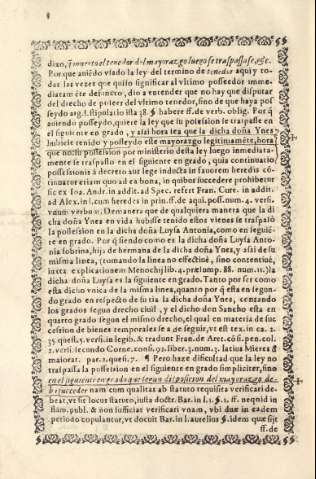 dixo, q̃ muerto el tenedor del mayorazgo luego se traspassasse, &c.
Por que auiẽdo vsado la ley del termino de tenedor aqui y to-
das las vezes que quiso significar al vltimo posseedor imme-
diatamẽte defuncto, dio a entender que no hay que disputar
del drecho de posseer del vltimo tenedor, sino de que haya pos-
seydo arg. l. stipulatio ista 38. § habere ff. de verb. oblig. Por q̃
auiendo posseydo, quiere la ley que la possession se traspasse en
el siguiente en grado, y assi hora sea que la dicha doña Ynes
hubiesse tenido y posseydo este mayorazgo legitimamẽte, hora
que tuuiesse possession por ministerio desta ley luego inmediata-
mente se traspasso en el siguiente en grado, quia continuatio
possessionis à decreto aut lege inducta in fauorem heredis co
tinuatur etiam quo ad ea bona, in quibus succedere prohibetur
sic ex Ioa. Andr. in addit. ad Spec. refert Fran. Cure. in addit.
ad Alex. in l. cum heredes in prin. ff. de aqui. poss. num. 4. versi.
vnum verbum. Demanera que de qualquiera manera que la di
cha doña Ynes en vida hubiesse tenido estos vienes se traspassò
la possession en la dicha doña Luysa Antonia, como en seguiẽ-
te en grado. Por q̃ siendo como es la dicha doña Luysa Anto-
nia sobrina, hija de hermana de la dicha doña Ynes, y assi de su
misma linea, (tomando la linea no effectiuè, sino contentiuè,
iuxta explicationem Menochij lib. 4. præsump. 88. num. 11.) la
dicha doña Luysa es la siguiente en grado. Tanto por ser como
esta dicho vnica de la misma linea, quanto por q̃ esta en segun-
do grado en respecto de su tia la dicha doña Ynes, contando
los grados segun drecho ciuil, y el dicho don Sancho esta en
quarto grado segun el mismo drecho, el qual en materia de suc
cession de bienes temporales se a de seguir, vt est tex. in ca. 2.
35. quest. 5. versi. in legib. & tradunt Fran. de Aret. cõs. pen. col.
2. versi. secundo Corne. cons. 90. liber. 3. num. 3. latius Mieres
maiorat. par. 2. quest. 7. ¶ Pero haze dificultad que la ley no
traspassa la possession en el siguiente en grado simpliciter, sino
en el siguiente en grado que segun disposicion del mayorazgo de-
be suceder nam cum qualitas ab statuto requisita verificari de-
beat, vt sit locus statuto, iusta doctr. Bar. in l. 1. §. 1. ff. nequid in
flum. publ. & non sufficiat verificari vnam, vbi duæ in eadem
periodo copulantur, vt docuit Bar. in l. aurelius § idem que sijt
ff. de